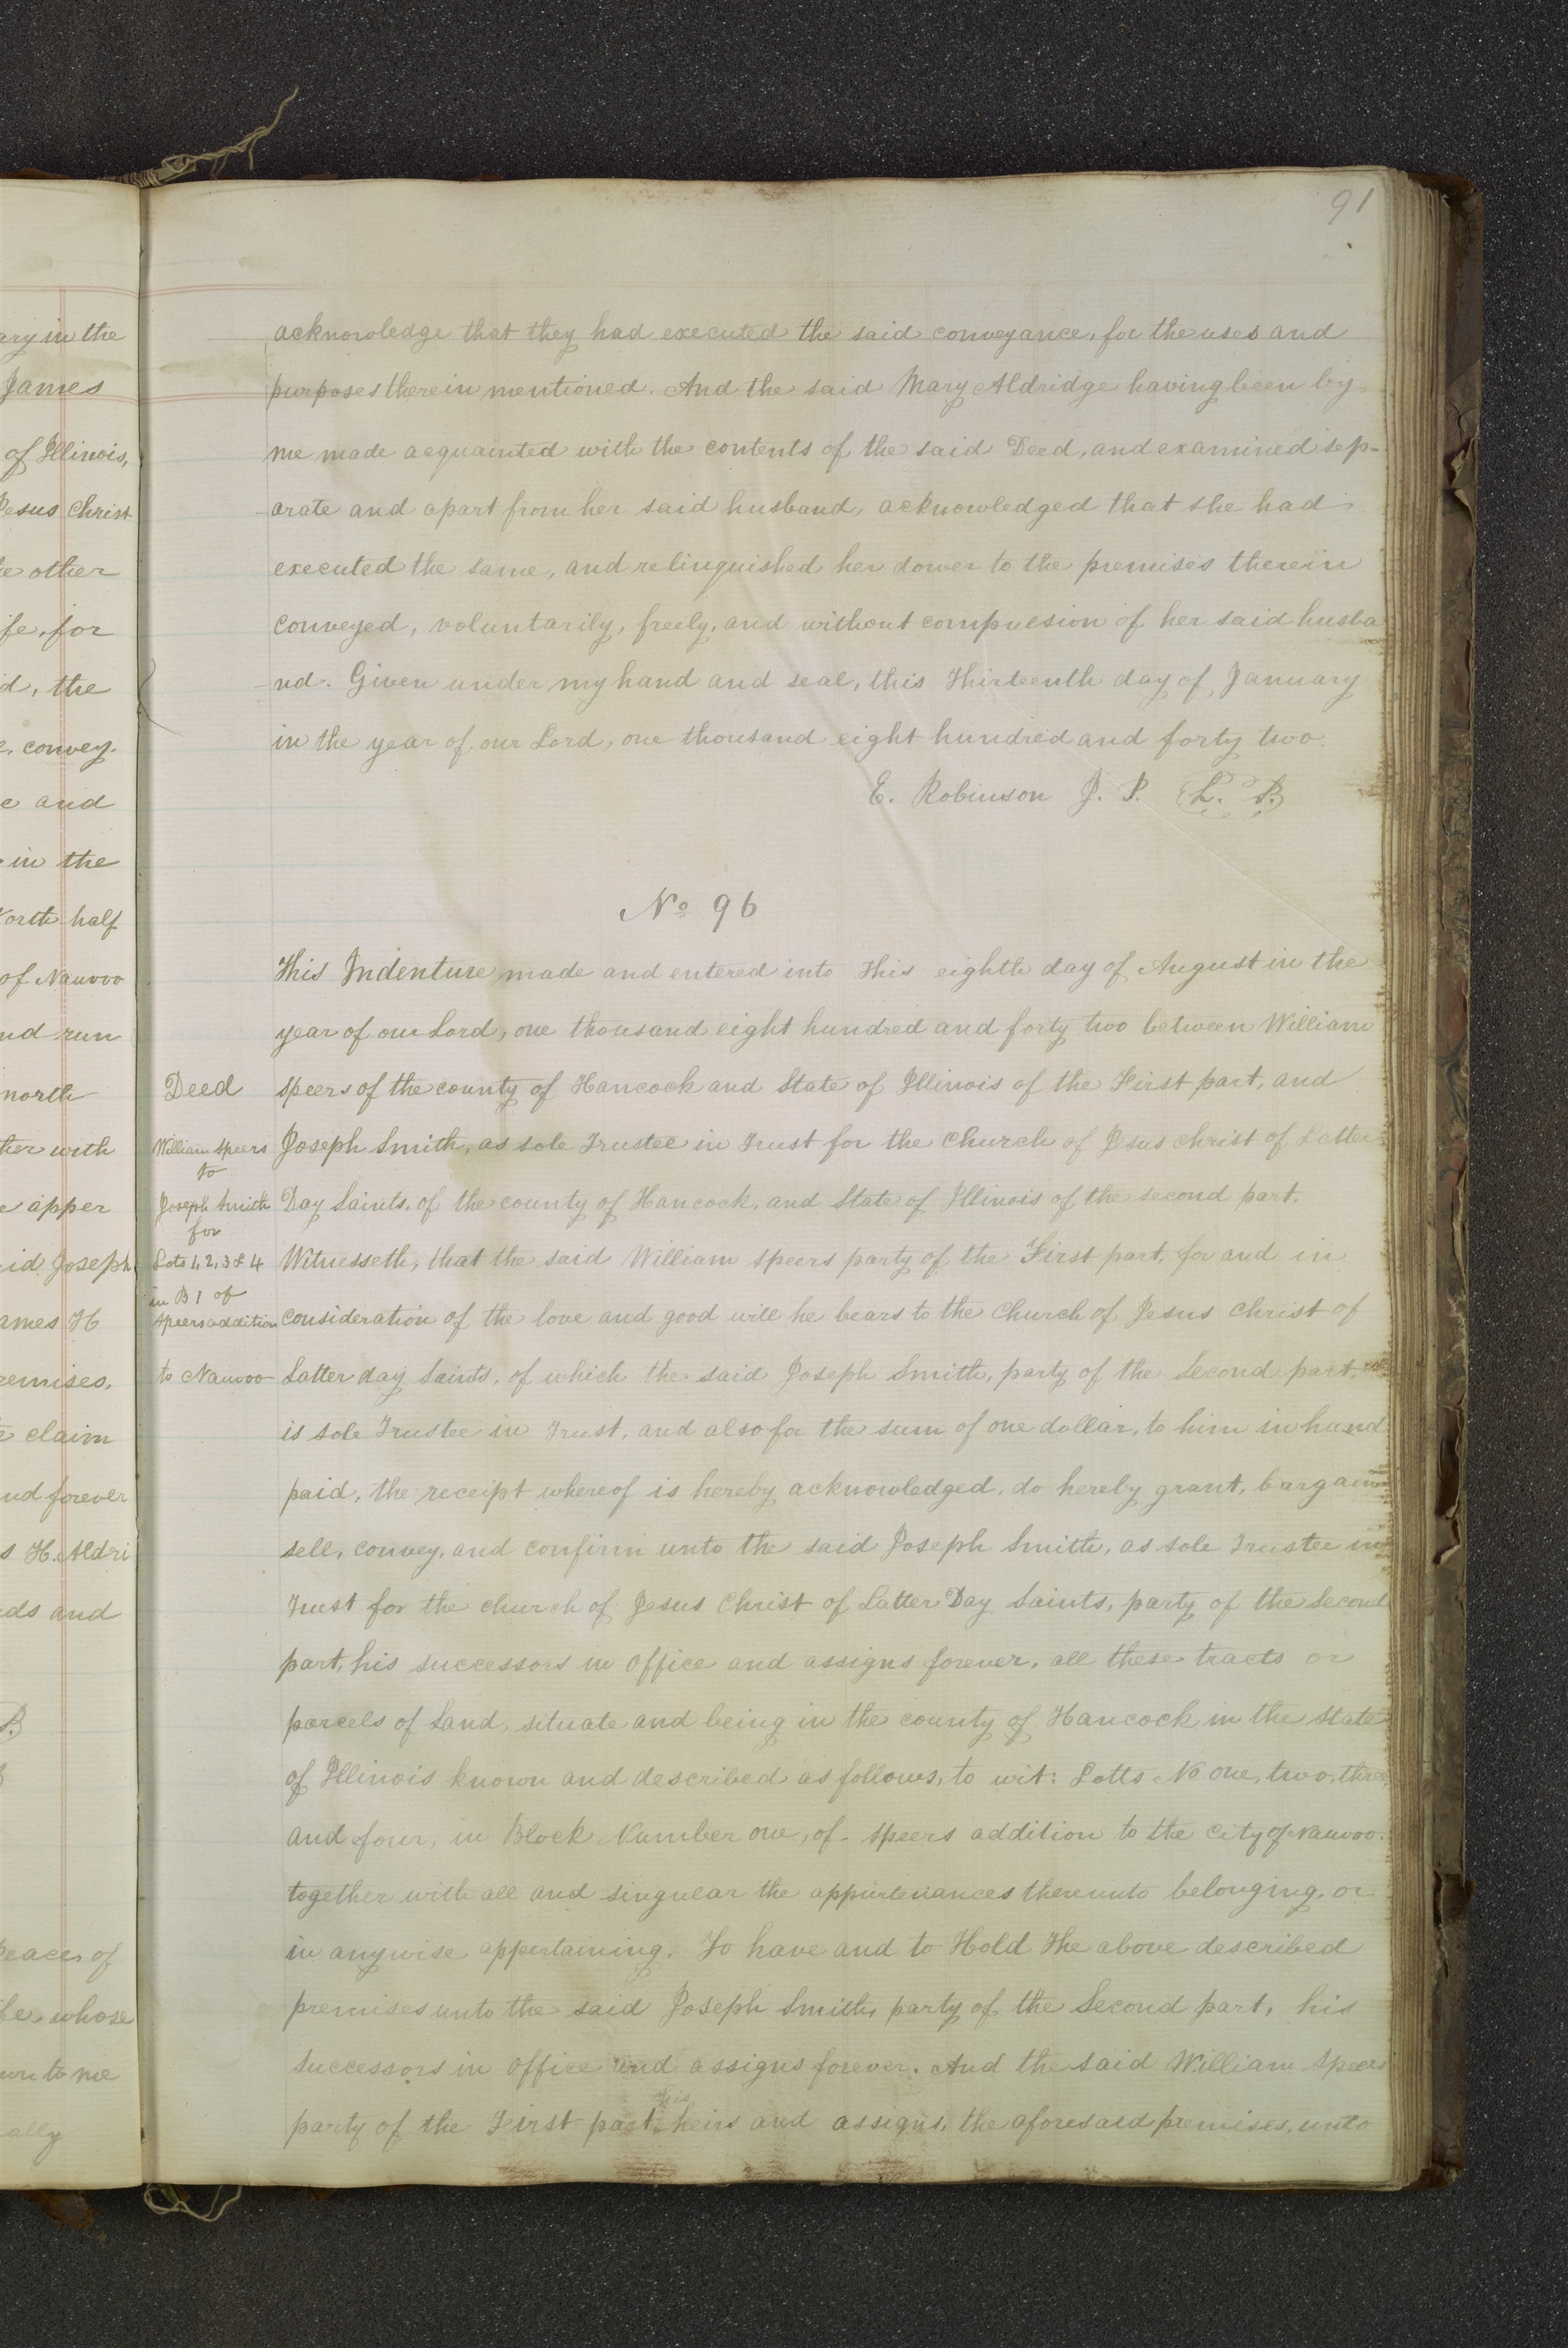 91
ary in the
James
of Illinois,
Jesus Christ
e other
ife, for
d, the
e, convey.
e and
in the
North half
of Nauvoo
nd run
north
ther with
e apper
id Joseph
ames H
remises,
e claim
nd forever
s H. Aldri
ds and
Peace, of
ife, whose
wn to me
ally
acknowledge that they had executed the said conveyance, for the uses and
purposes therein mentioned. And the said Mary Aldridge having been by
me made acquainted with the contents of the said Deed, and examined sep-
-arate and apart from her said husband, acknowledged that she had
executed the same, and relinquished her dower to the premises therein
conveyed, voluntarily, freely, and without compulsion of her said husba
-nd. Given under my hand and seal, this Thirteenth day of January
in the year of our Lord, one thousand eight hundred and forty two.
E. Robinson J. P. L. S.
No 96
This Indenture made and entered into This eighth day of August in the
year of our Lord, one thousand eight hundred and forty two between William
Deed
speers of the county of Hancock and State of Illinois of the First part, and
William Speers
to
Joseph Smith, as sole Trustee in Trust for the Church of Jesus Christ of Latter
Joseph Smith
for
Day Saints, of the county of Hancock, and State of Illinois of the second part.
Lots 1, 2, 3 & 4
in B 1 of
Witnesseth, that the said William speers party of the First part, for and in
Speers addition
consideration of the love and good will he bears to the Church of Jesus Christ of
to Nauvoo
Latter day Saints, of which the said Joseph Smith, party of the Second part,
is sole Trustee in Trust, and also for the sum of one dollar, to him in hand
paid, the receipt whereof is hereby acknowledged, do hereby grant, bargain
sell, convey, and confirm unto the said Joseph Smith, as sole Trustee in
Trust for the church of Jesus Christ of Latter Day Saints, party of the Second
part, his successors in office and assigns forever, all these tracts or
parcels of Land, situate and being in the county of Hancock in the State
of Illinois known and described as follows, to wit: Lotts No one, two, three,
and four, in Block Number one, of Speers addition to the City of Nauvoo.
together with all and singular the appurtenances thereunto belonging, or
in anywise appertaining. To have and to Hold The above described
premises unto the said Joseph Smith, party of the Second part, his
successors in office and assigns forever. And the said William Speers
party of the First part, his heirs and assigns, the aforesaid premises, unto